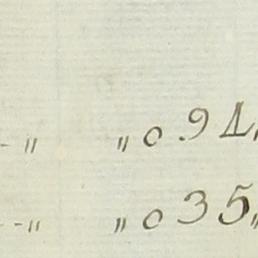 - " " 0 94"
- - " " 0 35"